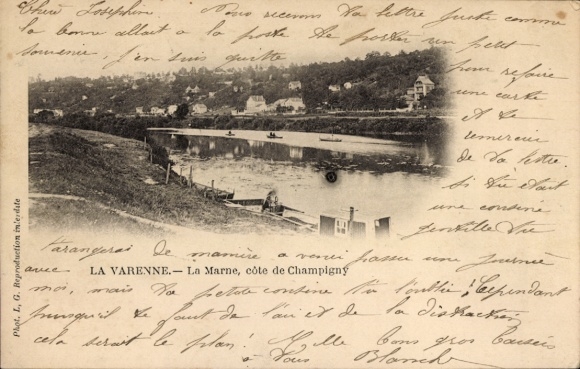 Chère Joséphine. Nous recevons ta lettre juste comme
la bonne allait à la poste te porter un petit
souvenir, j'en suis quitte
pour refaire
une carte
et te
remercier
de ta lettre.
Si tu étais
une cousine
gentille tu
t'arangerai de manière a venir passer une journée
avec
LA VARENNE. — La Marne, côte de Champigny
moi, mais ta petite cousine tu l'oublie; Cependant
puisqu'il te faut de l'air et de la distraction
cela serait le plan! Mille bons gros baisers
à tous Blanche
Phot. L. G. Reproduction interdite